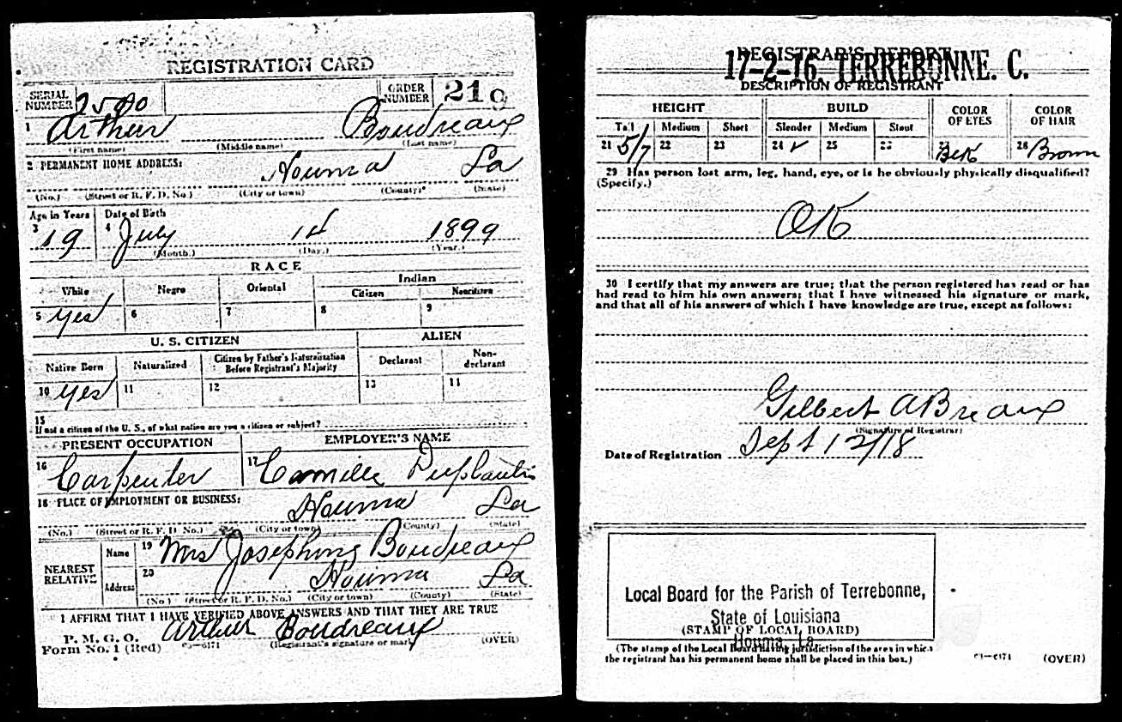 REGISTRATION CARD
SERIAL NUMBER 2500 ORDER NUMBER 219
1 Arthur Boudreaux
(First name) (Middle name) (Last name)
2 PERMANENT HOME ADDRESS:
Houma La
(No.) (Street or R. F. D. No.) (City or town) (County) (State)
Age in Years Date of Birth
3 19 4 July 1st 1899
(Month.) (Day.) (Year.)
RACE
White Negro Oriental Indian
Citizen Noncitizen
5 Yes 6 7 8 9
U. S. CITIZEN ALIEN
Native Born Naturalized Citizen by Father's Naturalization Before Registrant's Majority Declarant Non-declarant
10 Yes 11 12 13 14
15
If not a citizen of the U. S., of what nation are you a citizen or subject?
PRESENT OCCUPATION EMPLOYER'S NAME
16 Carpenter 17 Camille Duplantis
18 PLACE OF EMPLOYMENT OR BUSINESS:
Houma La
(No.) (Street or R. F. D. No.) (City or town) (County) (State)
NEAREST RELATIVE Name 19 Mrs Josephine Boudreaux
Address 20 Houma La
(No.) (Street or R. F. D. No.) (City or town) (County) (State)
I AFFIRM THAT I HAVE VERIFIED ABOVE ANSWERS AND THAT THEY ARE TRUE
P. M. G. O.
Form No. 1 (Red) Arthur Boudreaux
(Registrant's signature or mark) (OVER)
REGISTRAR'S REPORT
17-2-16. TERREBONNE. C.
DESCRIPTION OF REGISTRANT
HEIGHT BUILD COLOR OF EYES COLOR OF HAIR
Tall Medium Short Slender Medium Stout
21 5/7 22 23 24 ✓ 25 26 27 28 Brown
29 Has person lost arm, leg, hand, eye, or is he obviously physically disqualified?
(Specify.)
OK
30 I certify that my answers are true; that the person registered has read or has
had read to him his own answers; that I have witnessed his signature or mark,
and that all of his answers of which I have knowledge are true, except as follows:
Gilbert A Breaux
(Signature of Registrar)
Date of Registration Sept 12/18
Local Board for the Parish of Terrebonne,
State of Louisiana
(STAMP OF LOCAL BOARD)
Houma La.
(The stamp of the Local Board having jurisdiction of the area in which
the registrant has his permanent home shall be placed in this box.)
03—6171 (OVER)